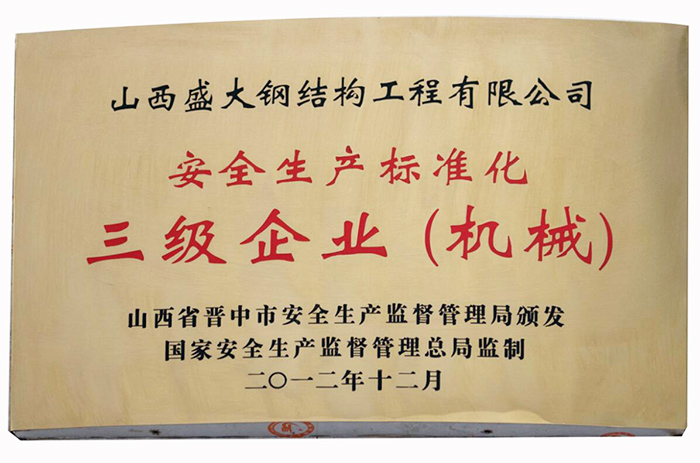 山西盛大钢结构工程有限公司
安全生产标准化
三级企业(机械)
山西省晋中市安全生产监督管理局颁发
国家安全生产监督管理总局监制
二〇一二年十二月